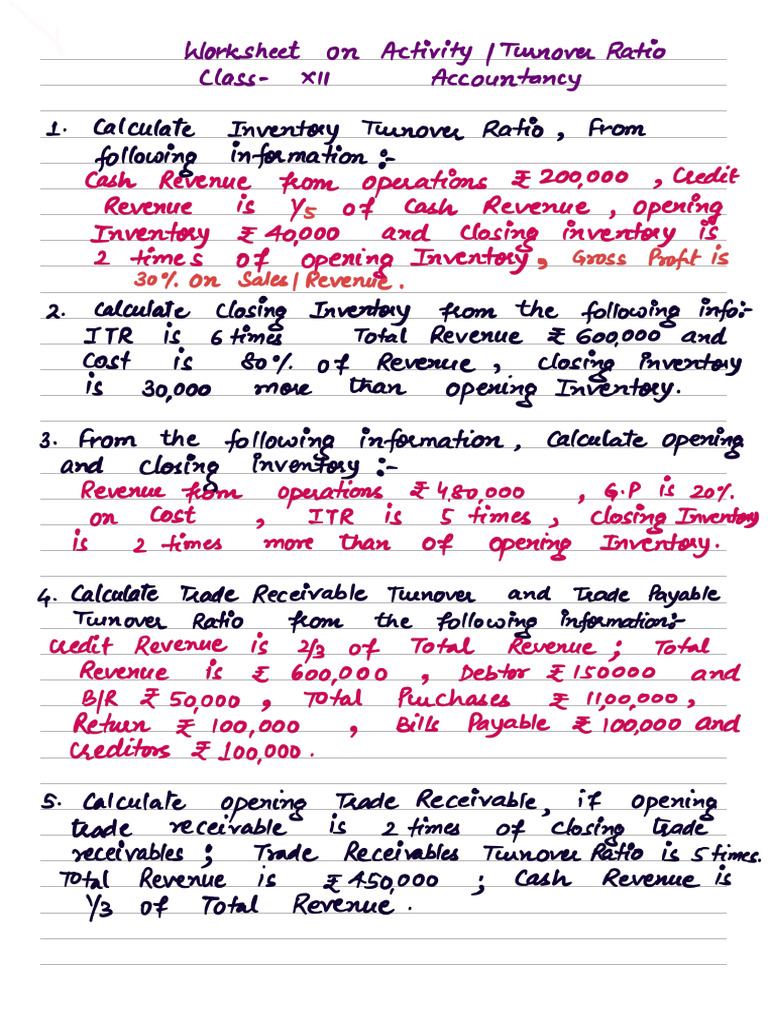 Worksheet on Activity / Turnover Ratio
Class- XII Accountancy
1. Calculate Inventory Turnover Ratio, From
following information :-
Cash Revenue from operations ₹ 200,000, Credit
Revenue is 1/5 of Cash Revenue, opening
Inventory ₹ 40,000 and closing inventory is
2 times of opening Inventory, Gross Profit is
30% on Sales/Revenue.
2. Calculate Closing Inventory from the following info:-
ITR is 6 times Total Revenue ₹ 600,000 and
Cost is 80% of Revenue, closing inventory
is 30,000 more than opening Inventory.
3. From the following information, Calculate opening
and closing inventory :-
Revenue from operations ₹ 480,000, G.P is 20%
on Cost, ITR is 5 times, closing Inventory
is 2 times more than of opening Inventory.
4. Calculate Trade Receivable Turnover and Trade Payable
Turnover Ratio from the following information:-
Credit Revenue is 2/3 of Total Revenue; Total
Revenue is ₹ 600,000, Debtor ₹ 150000 and
B/R ₹ 50,000, Total Purchases ₹ 11,00,000,
Return ₹ 100,000, Bills Payable ₹ 100,000 and
Creditors ₹ 100,000.
5. Calculate opening Trade Receivable, if opening
trade receivable is 2 times of closing trade
receivables; Trade Receivables Turnover Ratio is 5 times.
Total Revenue is ₹ 450,000; Cash Revenue is
1/3 of Total Revenue.